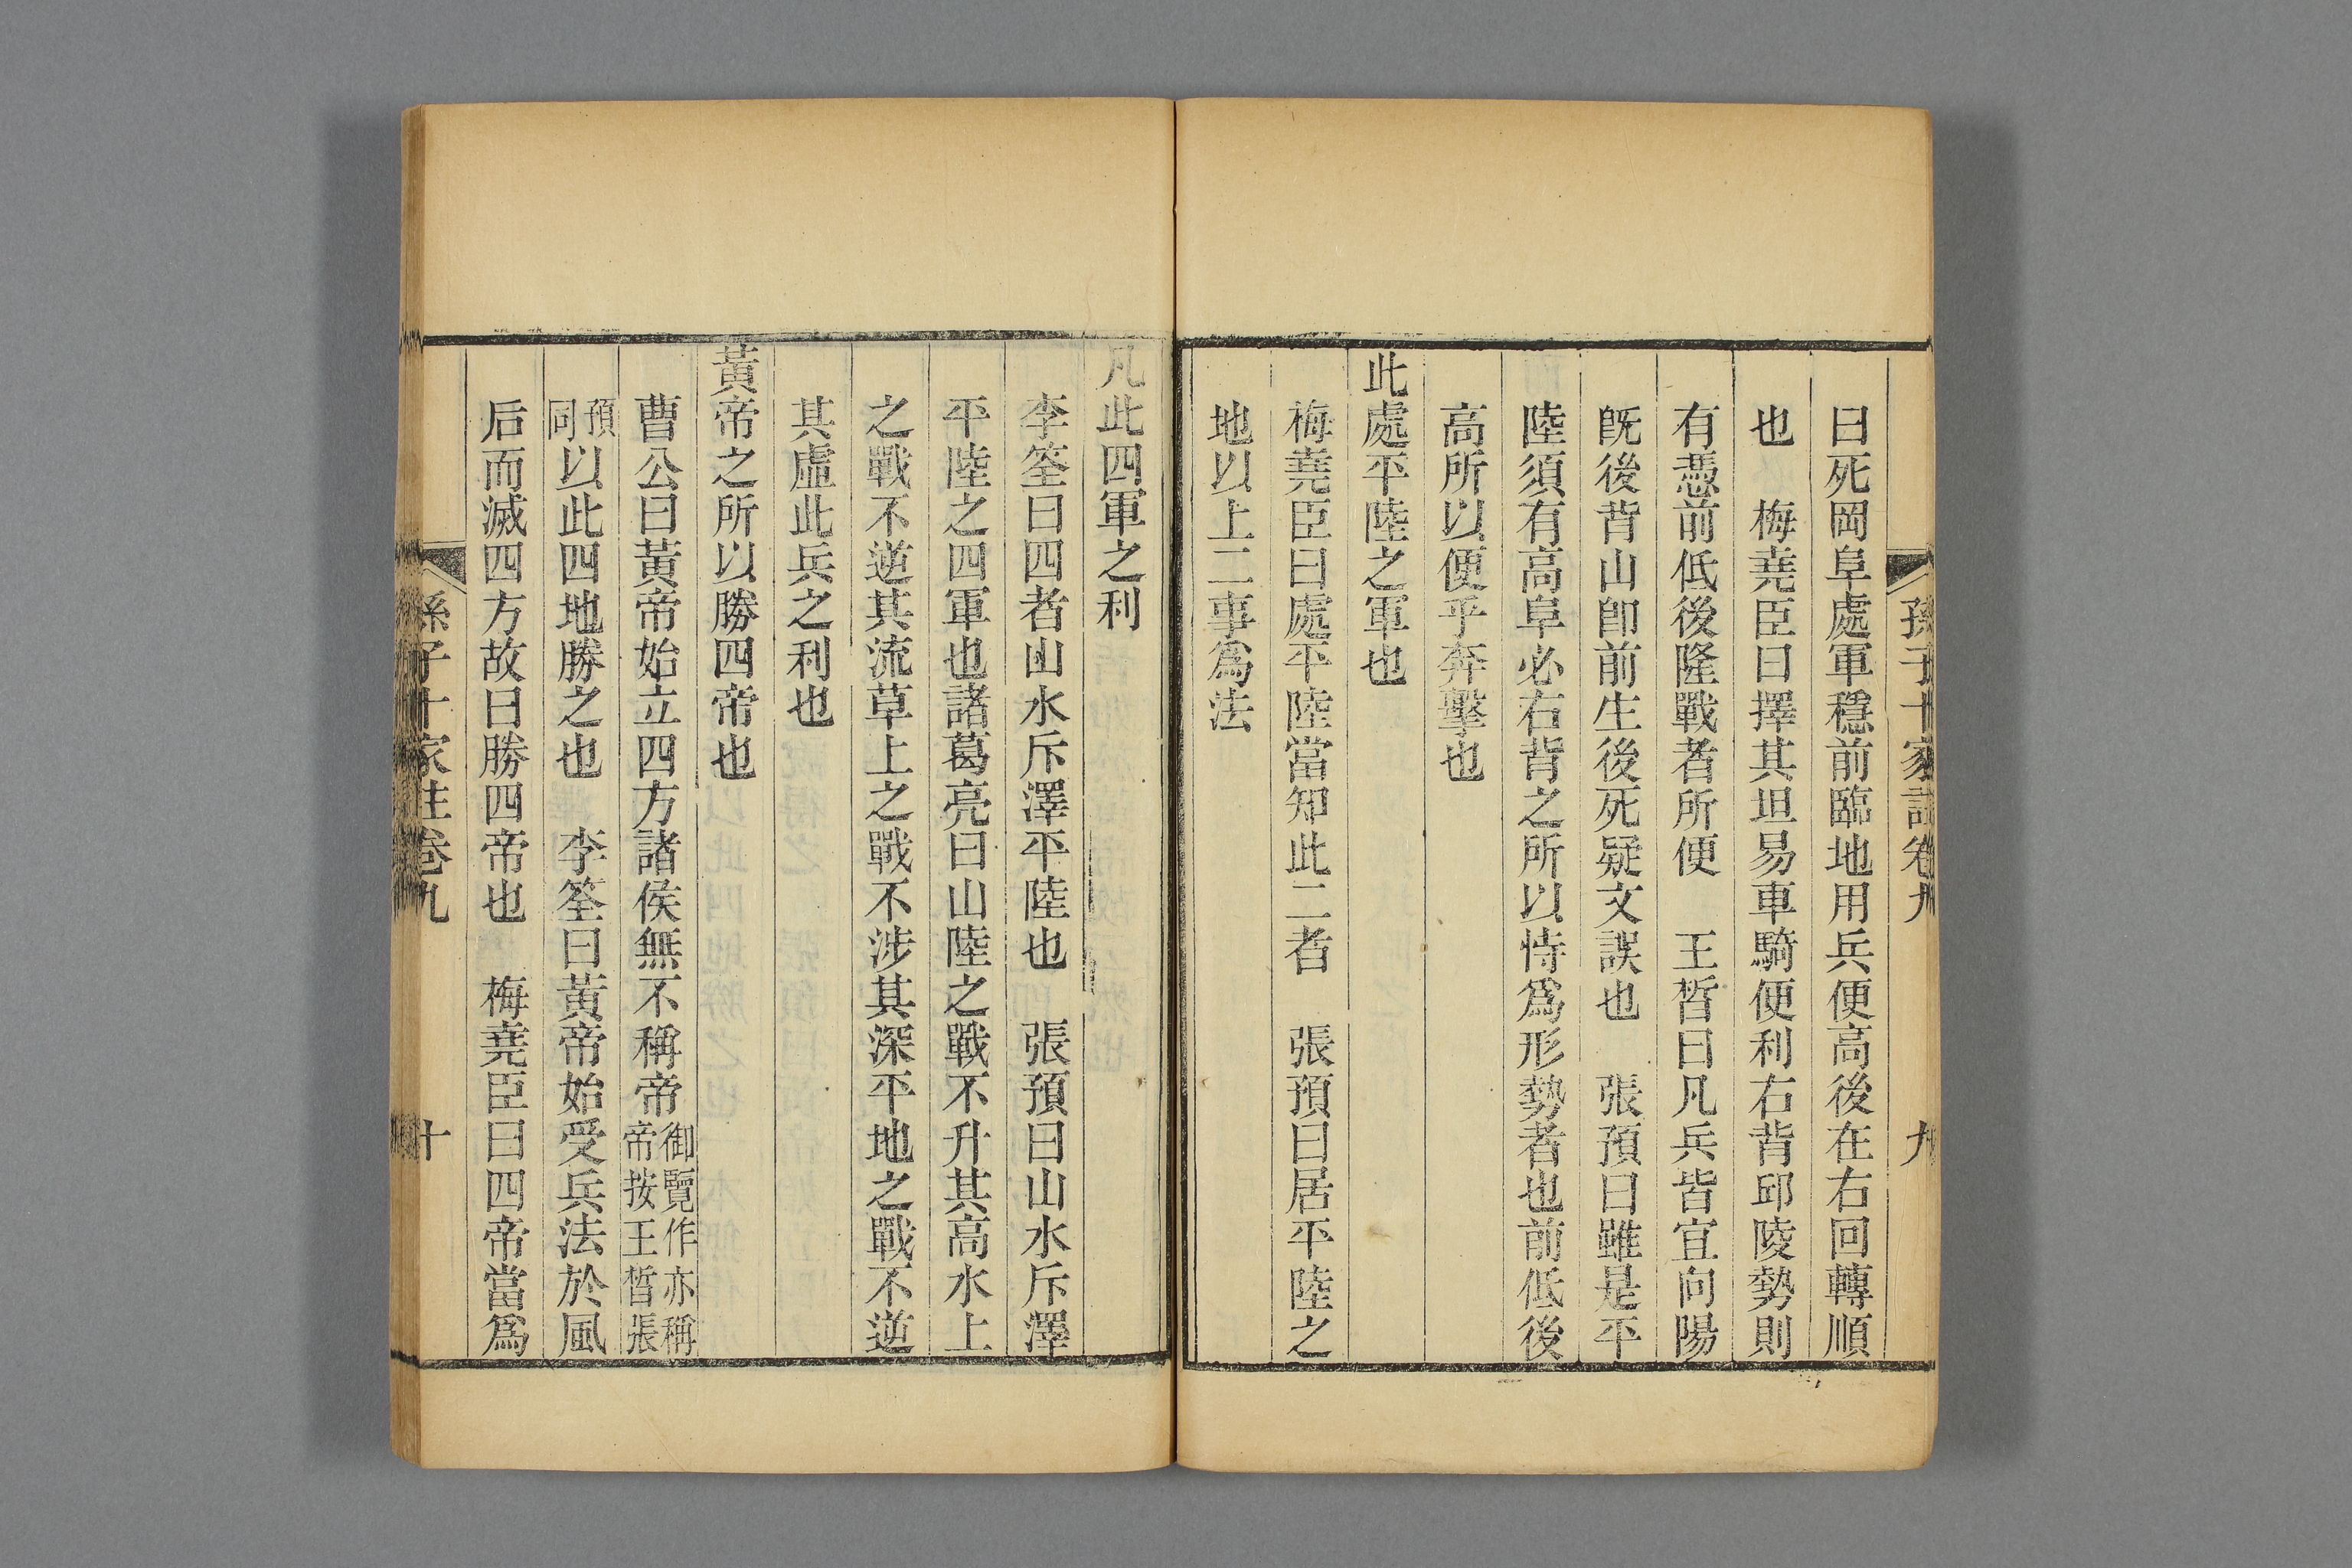 孫子十家註卷九　九
曰死岡阜處軍穩前臨地用兵便高後在右回轉順
也　梅堯臣曰擇其坦易車騎便利右背邱陵勢則
有憑前低後隆戰者所便　王晳曰凡兵皆宜向陽
旣後背山卽前生後死疑文誤也　張預曰雖是平
陸須有高阜必右背之所以恃爲形勢者也前低後
高所以便乎奔擊也
此處平陸之軍也
梅堯臣曰處平陸當知此二者　張預曰居平陸之
地以上二事爲法
凡此四軍之利
李筌曰四者山水斥澤平陸也　張預曰山水斥澤
平陸之四軍也諸葛亮曰山陸之戰不升其高水上
之戰不逆其流草上之戰不涉其深平地之戰不逆
其虛此兵之利也
黃帝之所以勝四帝也
曹公曰黃帝始立四方諸侯無不稱帝御覽作亦稱帝按王晳張
預同以此四地勝之也　李筌曰黃帝始受兵法於風
后而滅四方故曰勝四帝也　梅堯臣曰四帝當爲
孫子十家註卷九　十